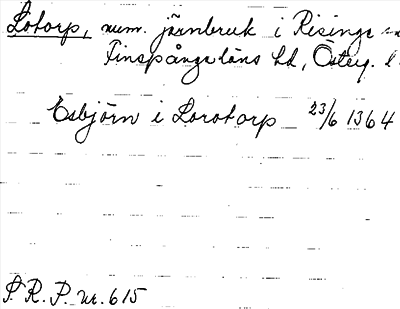 Lotorp, num. järnbruk i Risinge
Finspångs läns hd, Österg. l.
Esbjörn i Lorotorp 23/6 1364
S. R. P. nr. 615